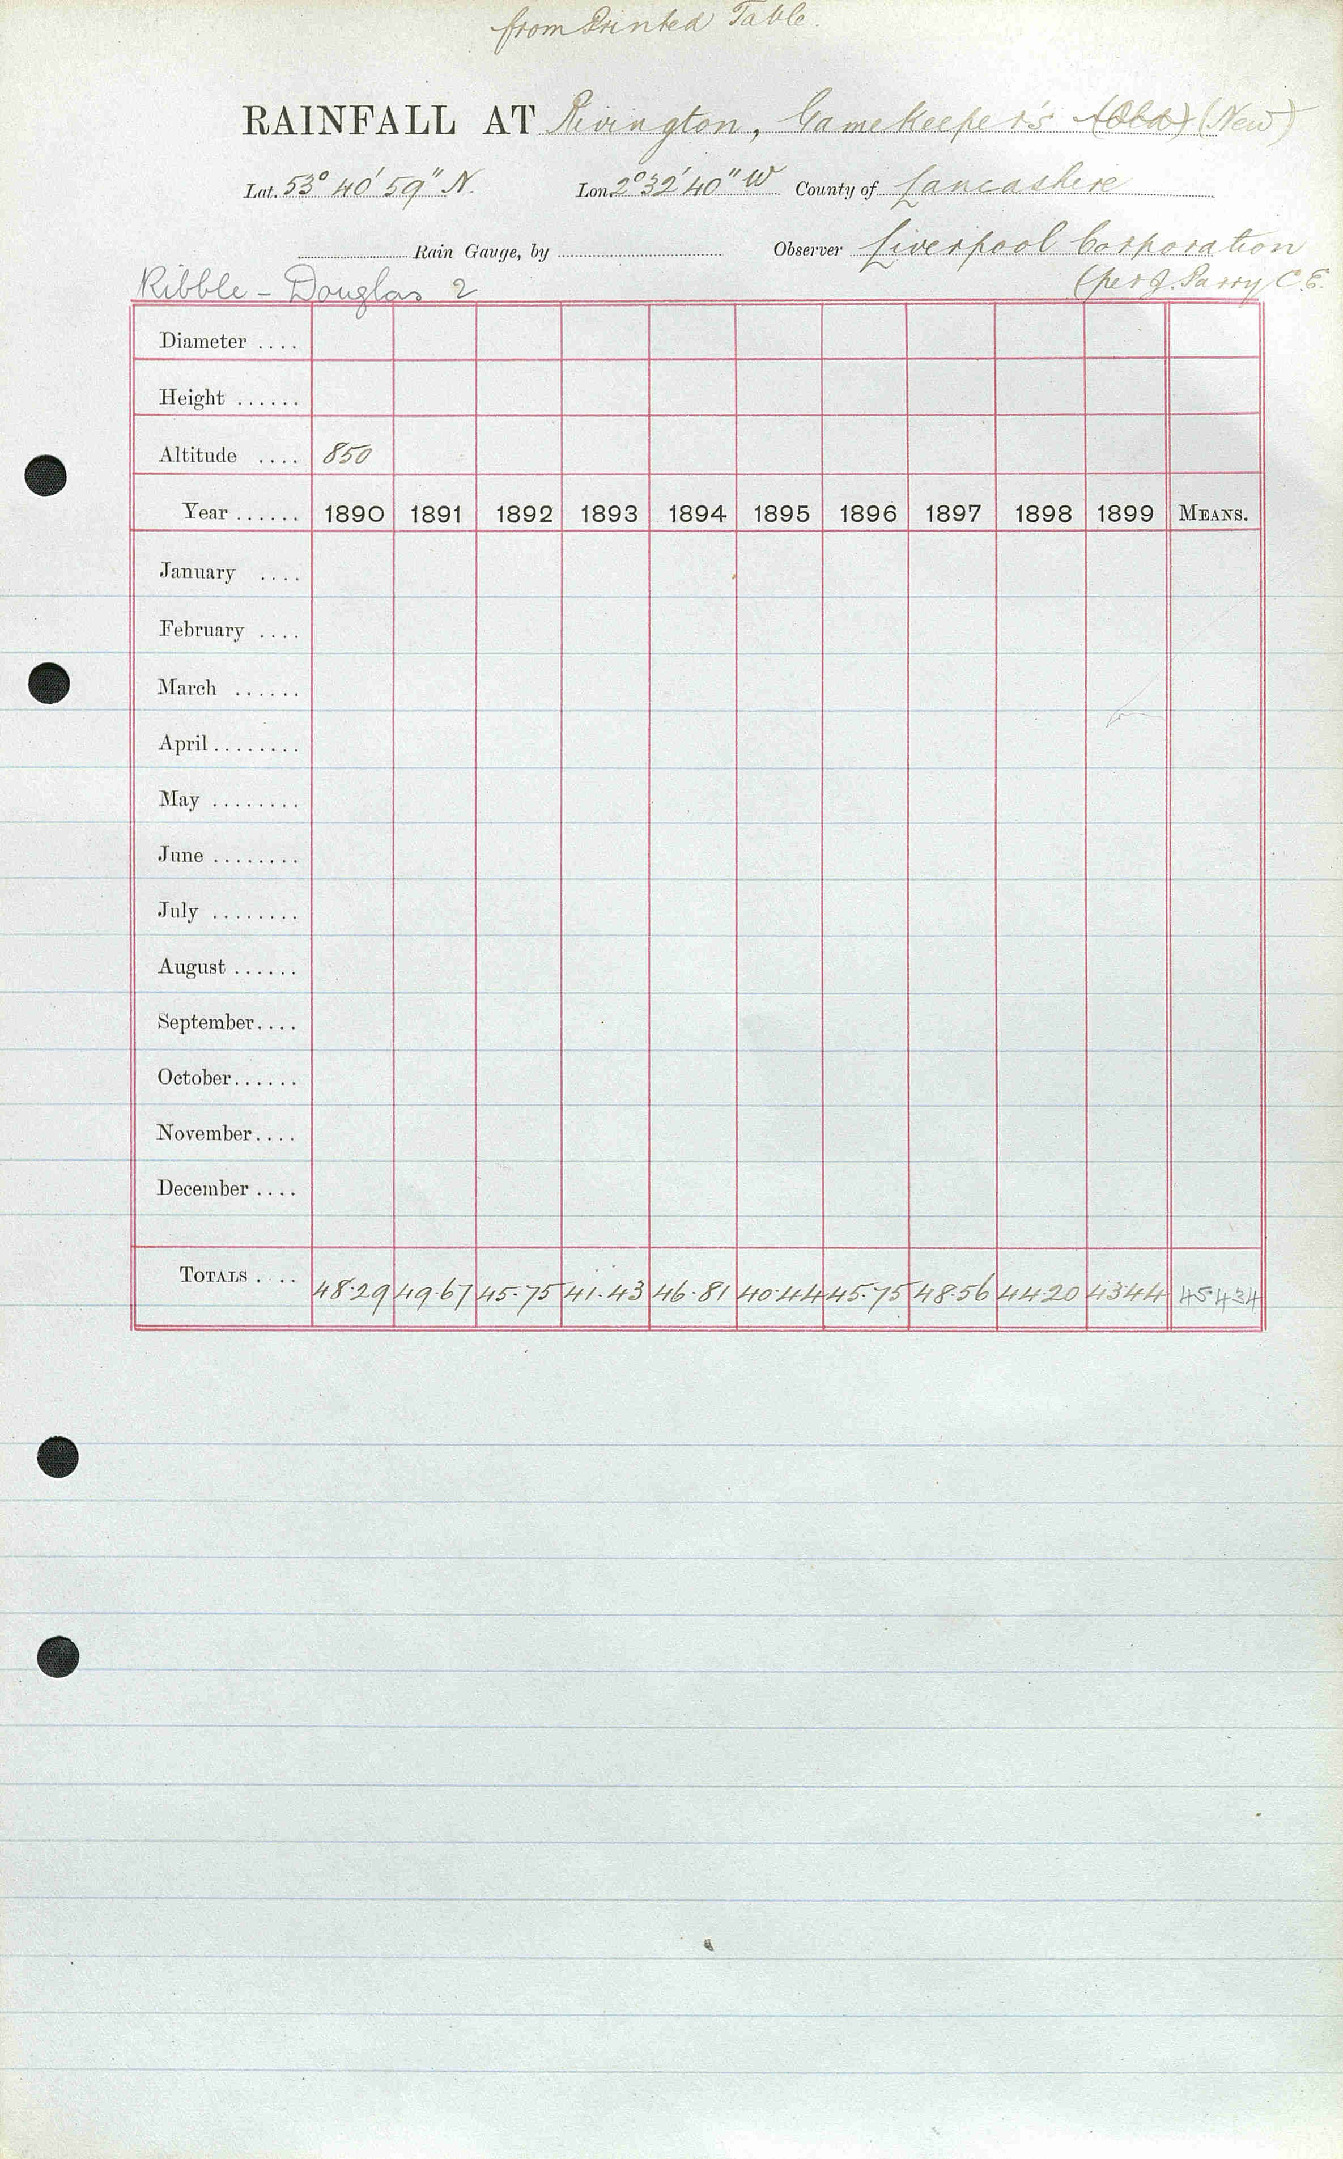 from Printed Table.
RAINFALL AT Rivington, Gamekeeper's (Old) (New)
Lat. 53° 40' 59" N. Lon. 2° 32' 40" W County of Lancashire
Rain Gauge, by Observer Liverpool Corporation
Ribble - Douglas 2 (per J. Parry C.E.
Diameter ....
Height ......
Altitude .... 850
Year ...... 1890 1891 1892 1893 1894 1895 1896 1897 1898 1899 MEANS.
January ....
February ....
March ......
April ........
May ........
June ........
July ........
August ......
September....
October......
November....
December ....
TOTALS .... 48.29 49.67 45.75 41.43 46.81 40.44 45.75 48.56 44.20 43.44 45.434